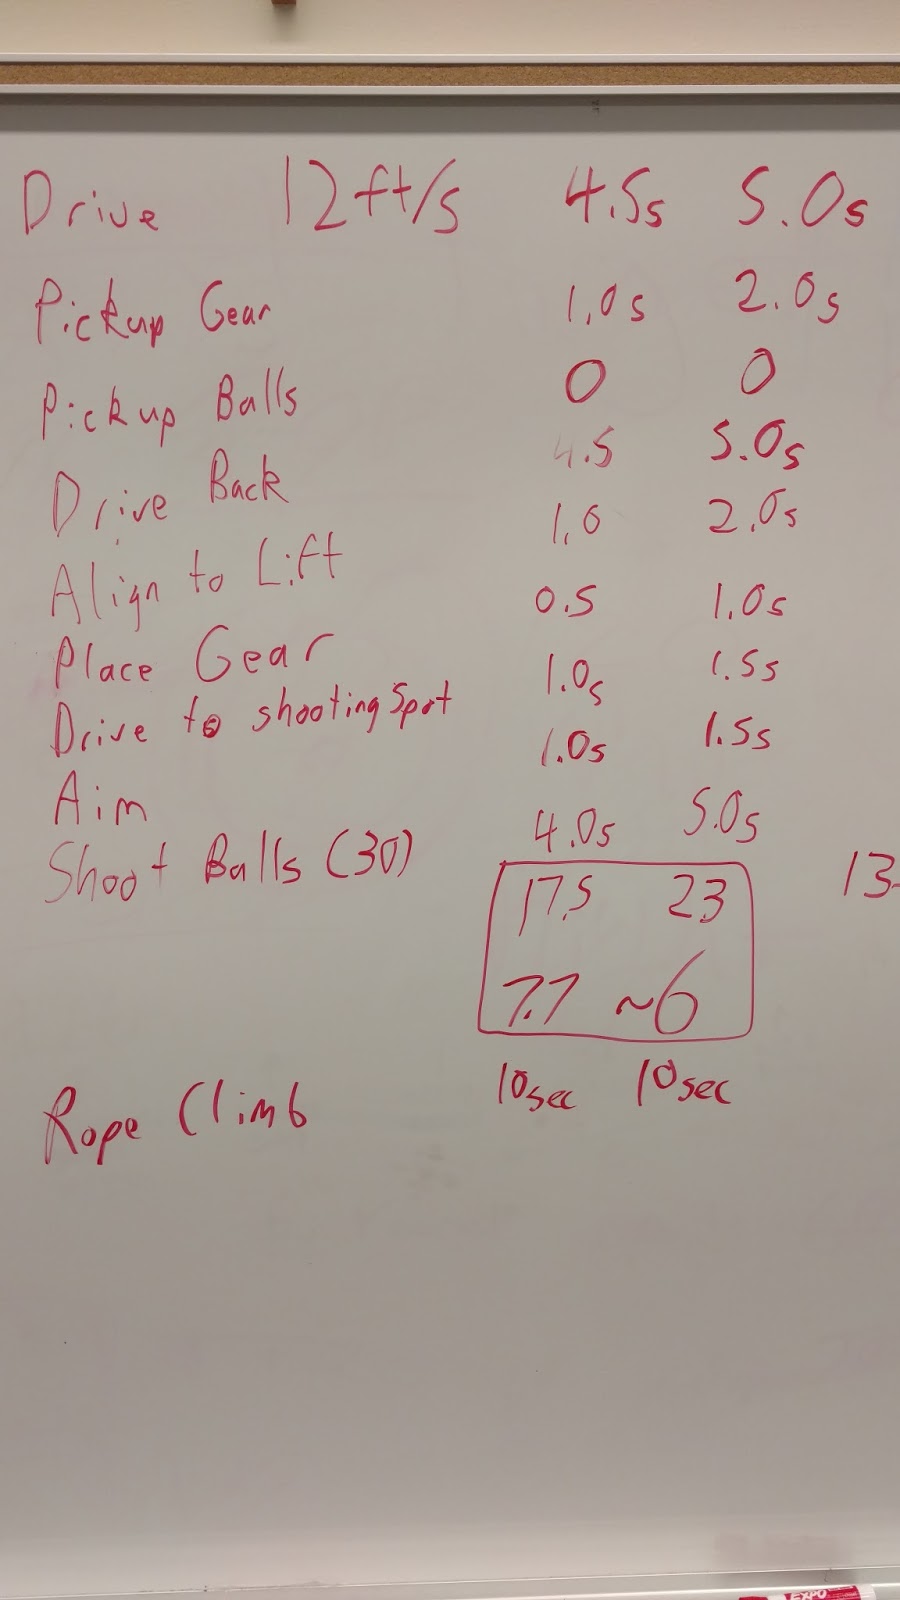 Drive 12ft/s 4.5s 5.0s
Pickup Gear 1.0s 2.0s
Pickup Balls 0 0
Drive Back 4.5 5.0s
Align to Lift 1.0 2.0s
Place Gear 0.5 1.0s
Drive to shooting Spot 1.0s 1.5s
Aim 1.0s 1.5s
Shoot Balls (30) 4.0s 5.0s
17.5 23 13
7.7 ~6
Rope Climb 10sec 10sec
EXPO